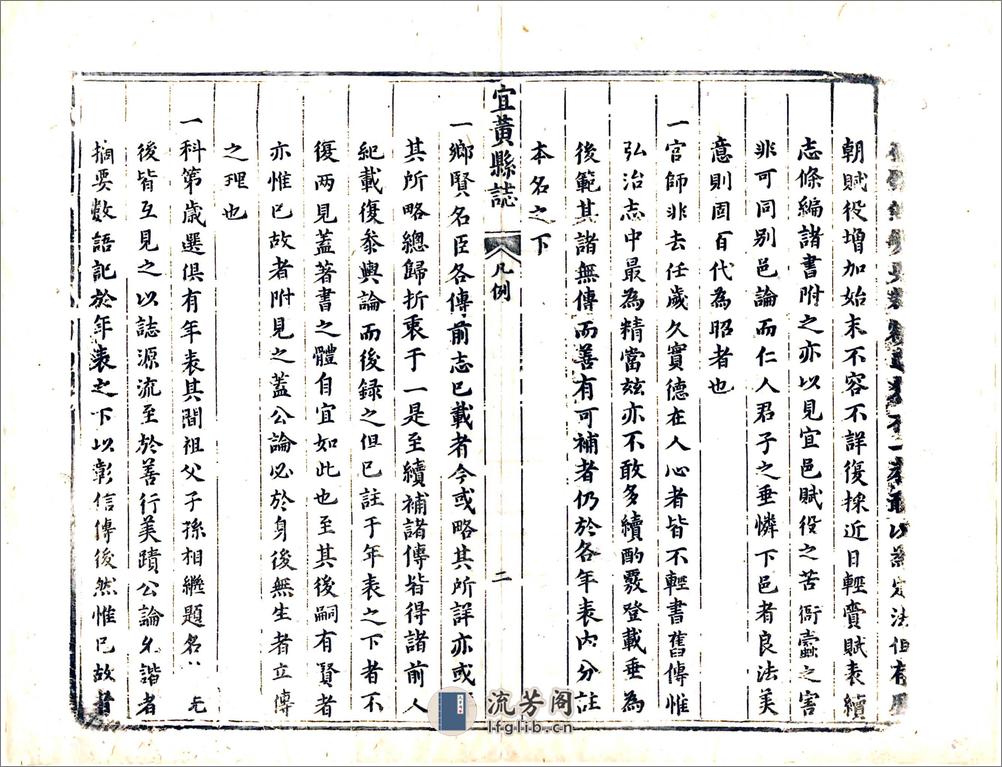 以為定法但有
朝賦役增加始末不容不詳復採近日輕賫賦表續
志條編諸書附之亦以見宜邑賦役之苦衙蠹之害
非可同別邑論而仁人君子之垂憐下邑者良法美
意則固百代為昭者也
一官師非去任歲久實德在人心者皆不輕書舊傳惟
弘治志中最為精當玆亦不敢多續酌覈登載垂為
後範其諸無傳而善有可補者仍於各年表內分註
本名之下
宜黃縣誌 凡例 二
一鄉賢名臣各傳前志已載者今或略其所詳亦或
其所略總歸折衷于一是至續補諸傳皆得諸前人
紀載復叅輿論而後録之但已註于年表之下者不
復両見蓋著書之體自宜如此也至其後嗣有賢者
亦惟已故者附見之蓋公論必於身後無生者立傳
之理也
一科第歲選俱有年表其間祖父子孫相繼題名
後皆互見之以誌源流至於善行美蹟公論允諧者
摘要數語記於年表之下以彰信傳後然惟已故者
流芳阁
lfglib.cn